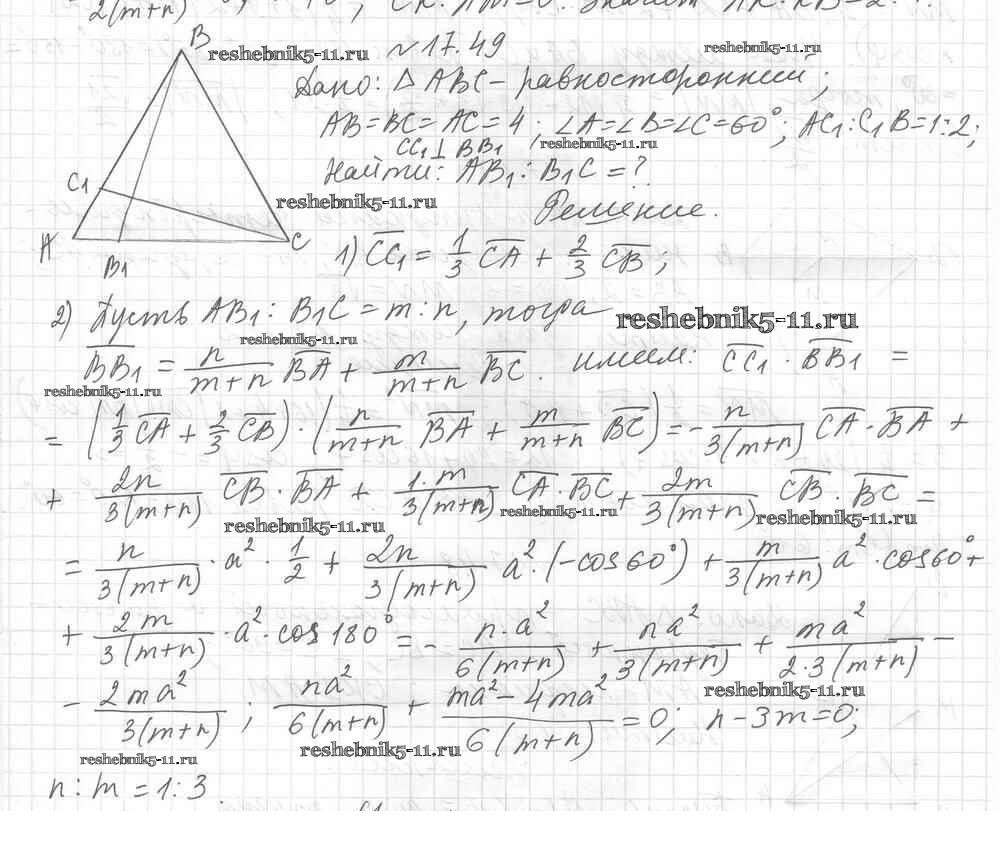 2(m+n)
B
reshebnik5-11.ru
№17.49
reshebnik5-11.ru
Дано: △ABC – равносторонний;
AB=BC=AC=4; ∠A=∠B=∠C=60°; AC₁:C₁B=1:2;
CC₁⊥BB₁
reshebnik5-11.ru
Найти: AB₁:B₁C=?
C₁
reshebnik5-11.ru
Решение.
A
C
B₁
1) CC₁ = 1/3 CA + 2/3 CB;
2) Пусть AB₁:B₁C=m:n, тогда
reshebnik5-11.ru
reshebnik5-11.ru
BB₁ = n/(m+n) BA + m/(m+n) BC. имеем: CC₁ · BB₁ =
reshebnik5-11.ru
= (1/3 CA + 2/3 CB) · (n/(m+n) BA + m/(m+n) BC) = - n/3(m+n) CA · BA +
+ 2n/3(m+n) CB · BA + 1·m/3(m+n) CA · BC + 2m/3(m+n) CB · BC =
reshebnik5-11.ru
reshebnik5-11.ru
reshebnik5-11.ru
= n/3(m+n) · a² · 1/2 + 2n/3(m+n) a² · (-cos60°) + m/3(m+n) a² · cos60° +
+ 2m/3(m+n) · a² · cos180° = - n·a²/6(m+n) + na²/3(m+n) + ma²/2·3(m+n) -
reshebnik5-11.ru
- 2ma²/3(m+n) ; na²/6(m+n) + ma²-4ma²/6(m+n) = 0; n-3m=0;
reshebnik5-11.ru
reshebnik5-11.ru
n:m=1:3